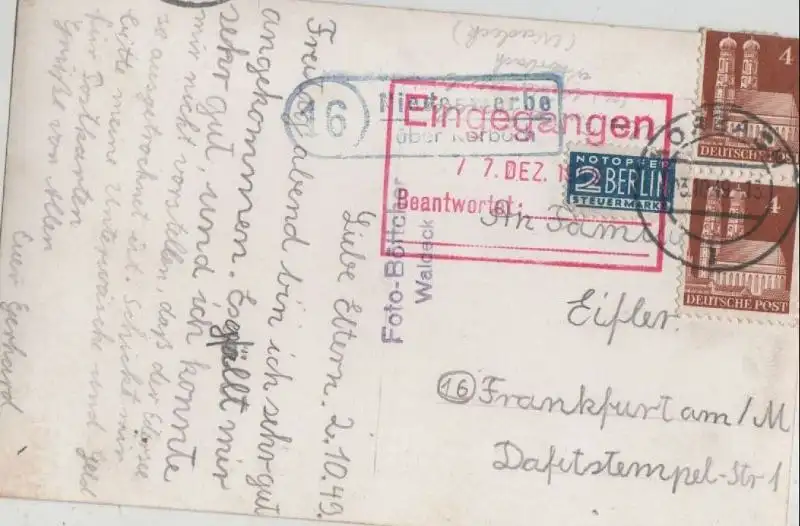 Liebe Eltern. 2.10.49.
Freitag abend bin ich sehr gut
angekommen. Es gefällt mir
sehr gut, und ich konnte
mir nicht vorstellen, daß der
so ausgetrocknet ist. Schickt mir
bitte meine Unterwäsche und Geld
für Postkarten
Grüße von Allen
Euer Gerhard
Foto-Böttcher
Waldeck
(Waldeck)
16
Niederwerbe
über Korbach
Eingegangen
7. DEZ. 1
Beantwortet:
NOTOPFER
2 BERLIN
STEUERMARKE
4
DEUTSCHE POST
4
DEUTSCHE POST
An Familie
Eifler.
(16) Frankfurt am/M
Dafitstempel-Str 1